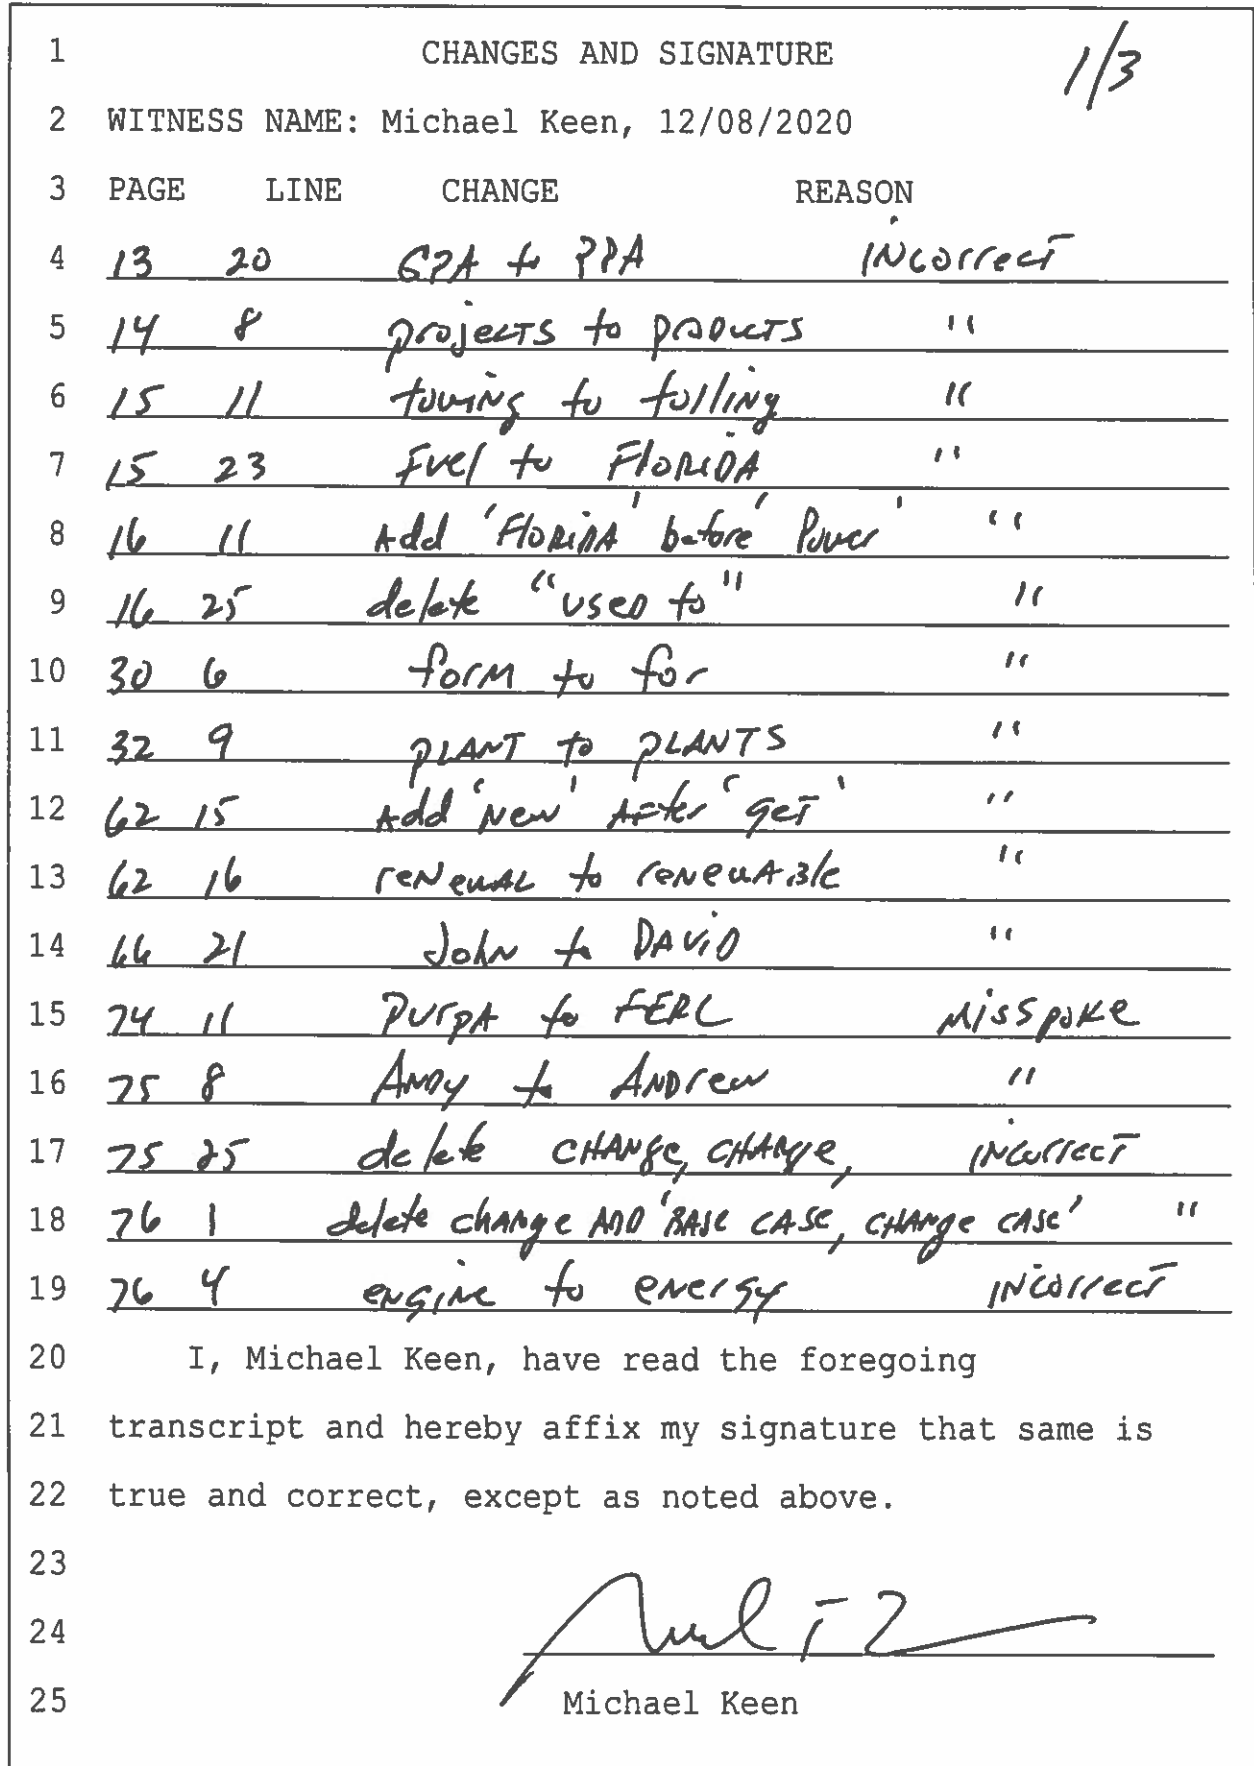 1 CHANGES AND SIGNATURE 1/3
2 WITNESS NAME: Michael Keen, 12/08/2020
3 PAGE LINE CHANGE REASON
4 13 20 GPA to PPA INcorrecT
5 14 8 projecTS to PRODUCTS "
6 15 11 towiNg to tolliNg "
7 15 23 Fuel to FloRiDA "
8 16 11 Add 'FloRiDA' before 'Power' "
9 16 25 delete "useD to" "
10 30 6 forM to for "
11 32 9 PLANT to PLANTS "
12 62 15 Add 'New' After 'geT' "
13 62 16 reNewAL to reNewABle "
14 66 21 JohN to DAViD "
15 74 11 PurpA to FERC MisSpoKe
16 75 8 ANDy to ANDrew "
17 75 25 delete CHANge, CHANge, INcorrecT
18 76 1 delete chANge AND 'BASe CASe, CHANge CASe' "
19 76 4 eNgiNe to eNergy INcorrecT
20 I, Michael Keen, have read the foregoing
21 transcript and hereby affix my signature that same is
22 true and correct, except as noted above.
23
24
25 Michael Keen